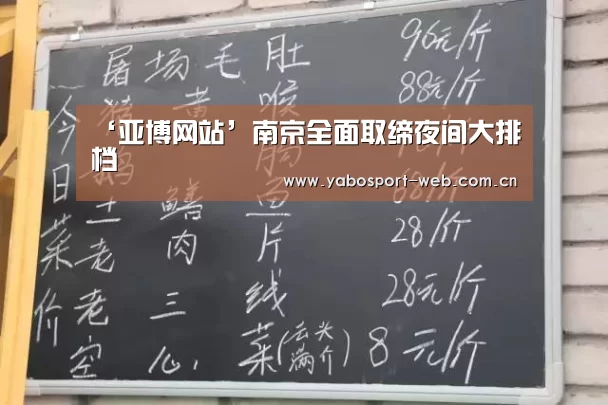 屠场毛肚 96元/介
猪黄喉 88元/介
‘亚博网站’南京全面取缔夜间大排
档
www.yabosport-web.com.cn
鹅肠
土鳝鱼 68/介
老肉片 28/介
老三线 28元/介
空心菜(去头满介) 8元/介
今日菜价